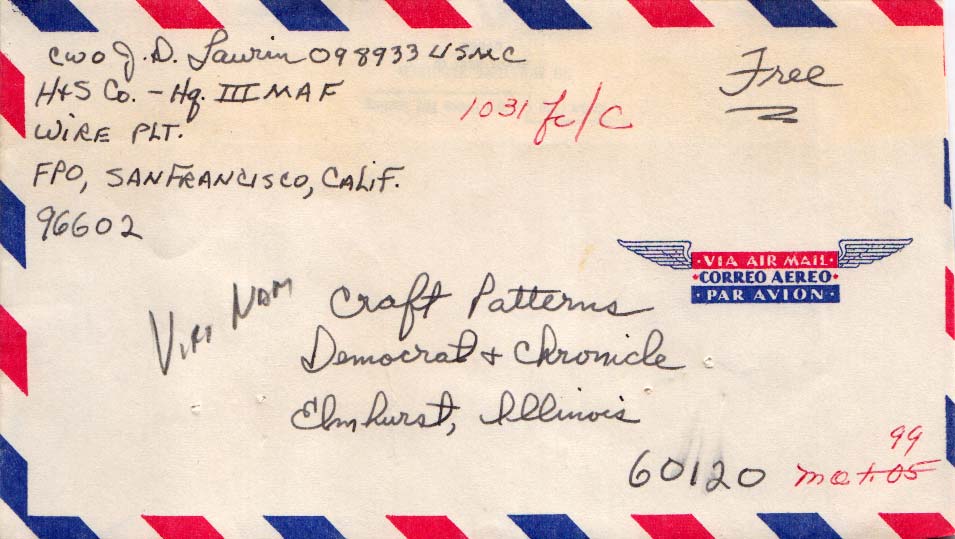 CWO J. D. Laurin 098933 USMC
H&S Co. - Hq. III MAF
WIRE PLT.
FPO, SAN FRANCISCO, CALIF.
96602
1031 fc/C
Free
VIA AIR MAIL
CORREO AEREO
PAR AVION
VIET NAM
Craft Patterns
Democrat & Chronicle
Elmhurst, Illinois
60120
99